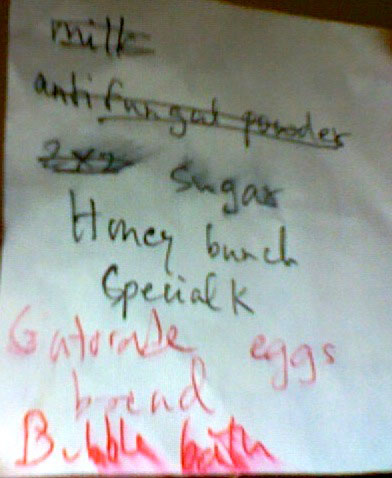 milk
antifungal powder
2x2 sugar
Honey bunch
Special K
Gatorade eggs
bread
Bubble bath